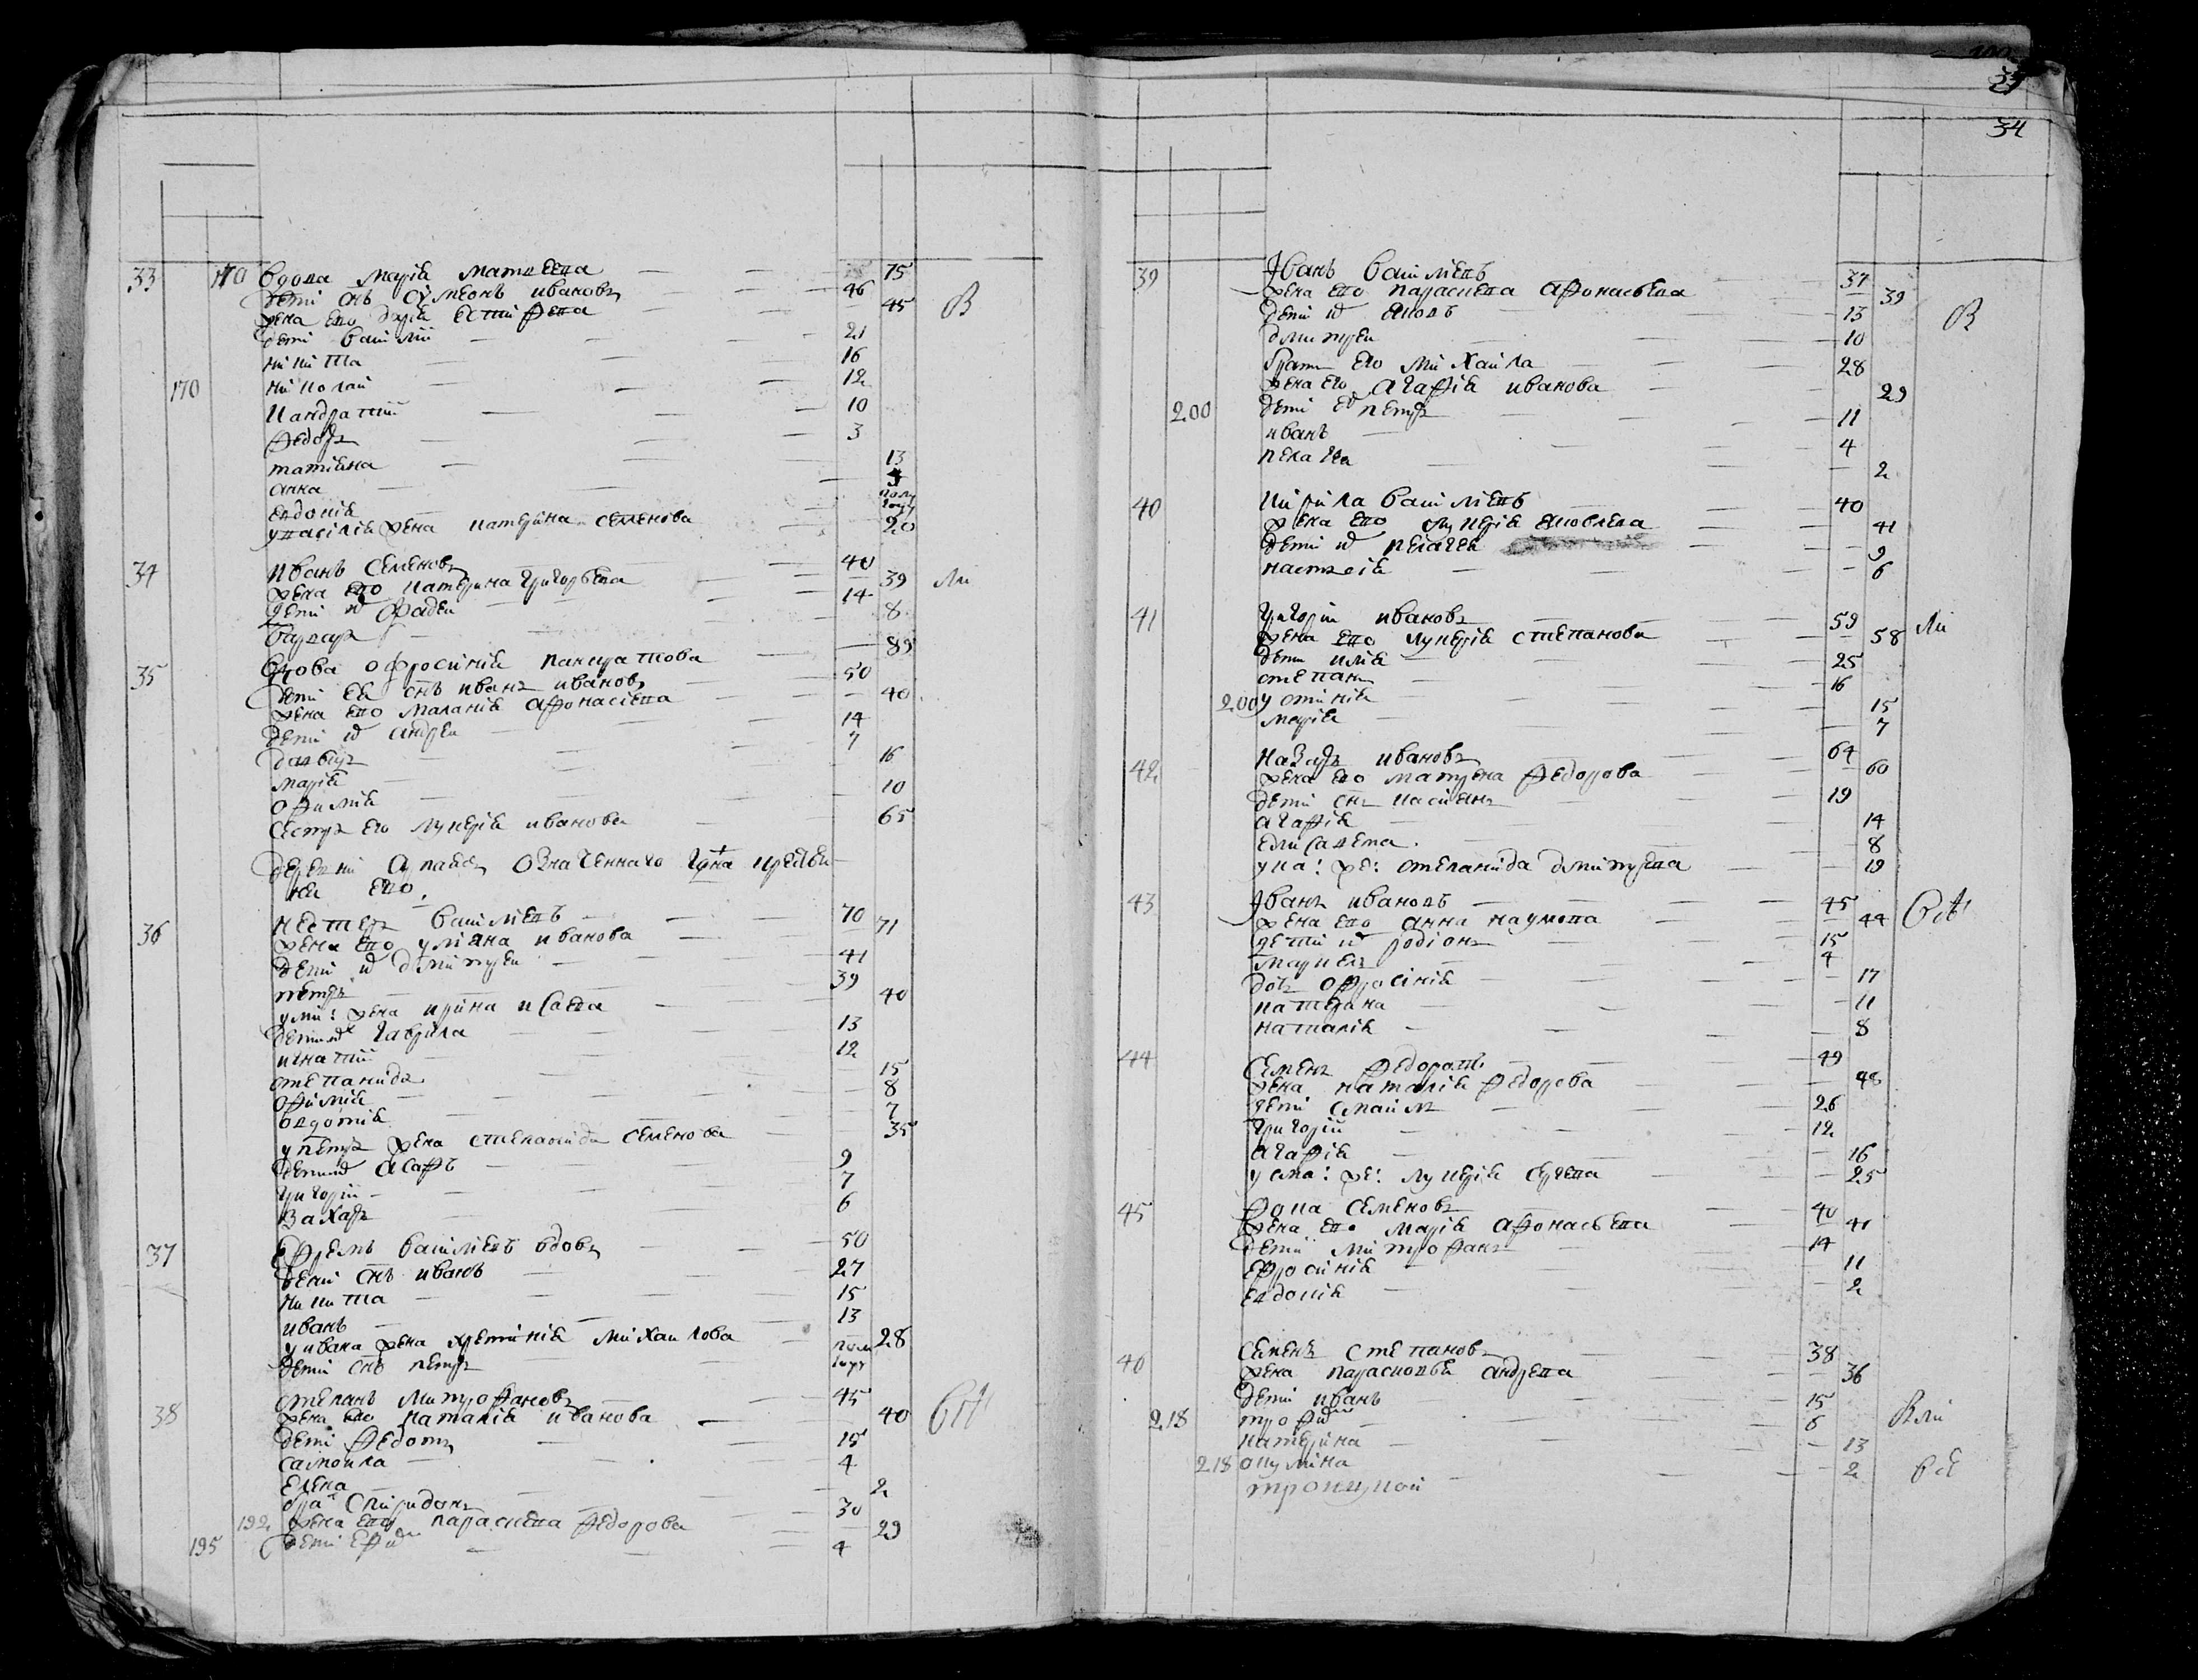 34
33 170 вдова марія матвѣева 75
дети снъ сумеонъ ивановъ 46
жена его дарія естифѣева 45 В
дети василій 21
никита 16
170 николаи 12
кандратий 10
федоръ 3
татіяна 13
анна
евдокія полу году
у василія жена катерина семенова 20
34 иванъ семеновъ 40
жена его катерина григорьева 39
дети их фадеи 14
варвара 8
35 вдова офросинія панкратова 89
дети ея снъ иванъ ивановъ 50
жена его маланія афонасіева 40
дети их андреи 14
7
марія 16
офимія 10
сестра его лукерія иванова 65
деревни означеннаго
его
36 нестеръ василіевъ 70
жена его уляна иванова 71
дети их дмитреи 41
петръ 39
у дми: жена ирина исаева 40
дети их гаврила 13
игнатий 12
степанида 15
офимія 8
овдотия 7
у петра жена степанида семенова 35
дети их асафъ 9
григорій 7
захаръ 6
37 ефремъ василіевъ вдовъ 50
дети снъ иванъ 27
никита 15
иванъ 13
у ивана жена хретинія михаилова 28
дети снъ петръ полу году
38 степанъ митрофановъ 45
жена его наталія иванова 40
дети федотъ 15
самоила 4
елена 2
бра спиридонъ 30
192 жена его параскева федорова 29
195 дети 4
39 иванъ василіевъ 37
жена его параскева афонасьева 39
дети их яковъ 13 В
дмитреи 10
братъ его михаила 28
жена его агафія иванова 29
200 дети ево петръ 11
иванъ 4
пелагея 2
40 кирила василіевъ 40
жена его лукерія яковлева 41
дети их пелагея 9
настасія 6
41 григории ивановъ 59
жена его лукерія степанова 58
дети илія 25
степанъ 16
200 устинія 15
марія 7
42 назаръ ивановъ 64
жена его матрена федорова 60
дети снъ касиянъ 19
агафія 14
елисавета 8
у ка: же: степанида дмитрева 19
43 иванъ ивановъ 45
жена его анна наумова 44
дети их родіонъ 15
маркелъ 4
дочь офросінія 17
катерина 11
наталія 8
44 семенъ федоровъ 49
жена наталія федорова 48
дети смаилъ 26
григорій 12
агафія 16
у сма: же: лукерія сргева 25
45 фока семеновъ 40
жена его марія афонасьева 41
дети митрофанъ 14
ефросинія 11
евдокія 2
46 семенъ степановъ 38
жена парасковья андреева 36
дети иванъ 15
218 трофим 6
катерина 13
218 акулина 2